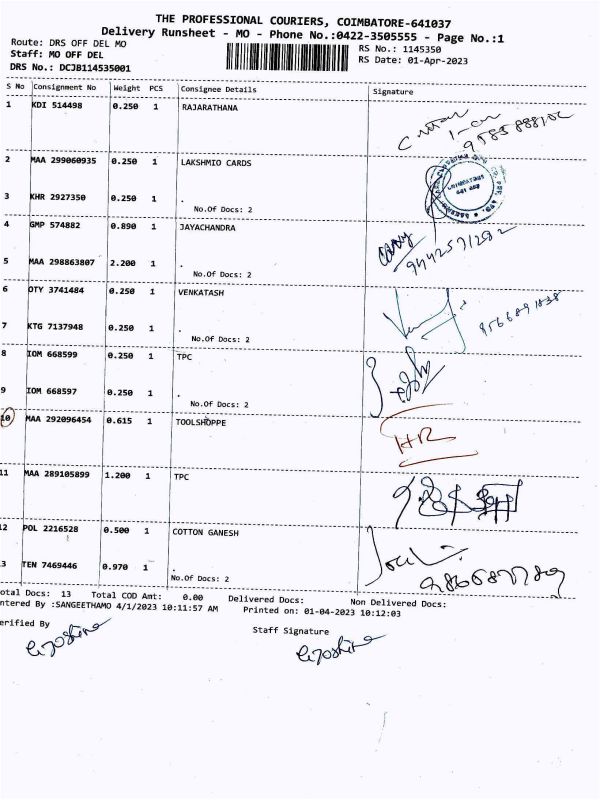 THE PROFESSIONAL COURIERS, COIMBATORE-641037
Delivery Runsheet - MO - Phone No.:0422-3505555 - Page No.:1
Route: DRS OFF DEL MO
Staff: MO OFF DEL
DRS No.: DCJB114535001
RS No.: 1145350
RS Date: 01-Apr-2023
S No Consignment No Weight PCS Consignee Details Signature
1 KDI 514498 0.250 1 RAJARATHANA
2 MAA 299060935 0.250 1 LAKSHMIO CARDS
3 KHR 2927350 0.250 1 .
No.Of Docs: 2
4 GMP 574882 0.890 1 JAYACHANDRA
9442571282
5 MAA 298863807 2.200 1 .
No.Of Docs: 2
6 OTY 3741484 0.250 1 VENKATASH
7 KTG 7137948 0.250 1 .
No.Of Docs: 2
8 IOM 668599 0.250 1 TPC
9 IOM 668597 0.250 1 .
No.Of Docs: 2
10 MAA 292096454 0.615 1 TOOLSHOPPE
HR
11 MAA 289105899 1.200 1 TPC
12 POL 2216528 0.500 1 COTTON GANESH
3 TEN 7469446 0.970 1 .
No.Of Docs: 2
otal Docs: 13 Total COD Amt: 0.00 Delivered Docs: Non Delivered Docs:
ntered By :SANGEETHAMO 4/1/2023 10:11:57 AM Printed on: 01-04-2023 10:12:03
erified By
Staff Signature